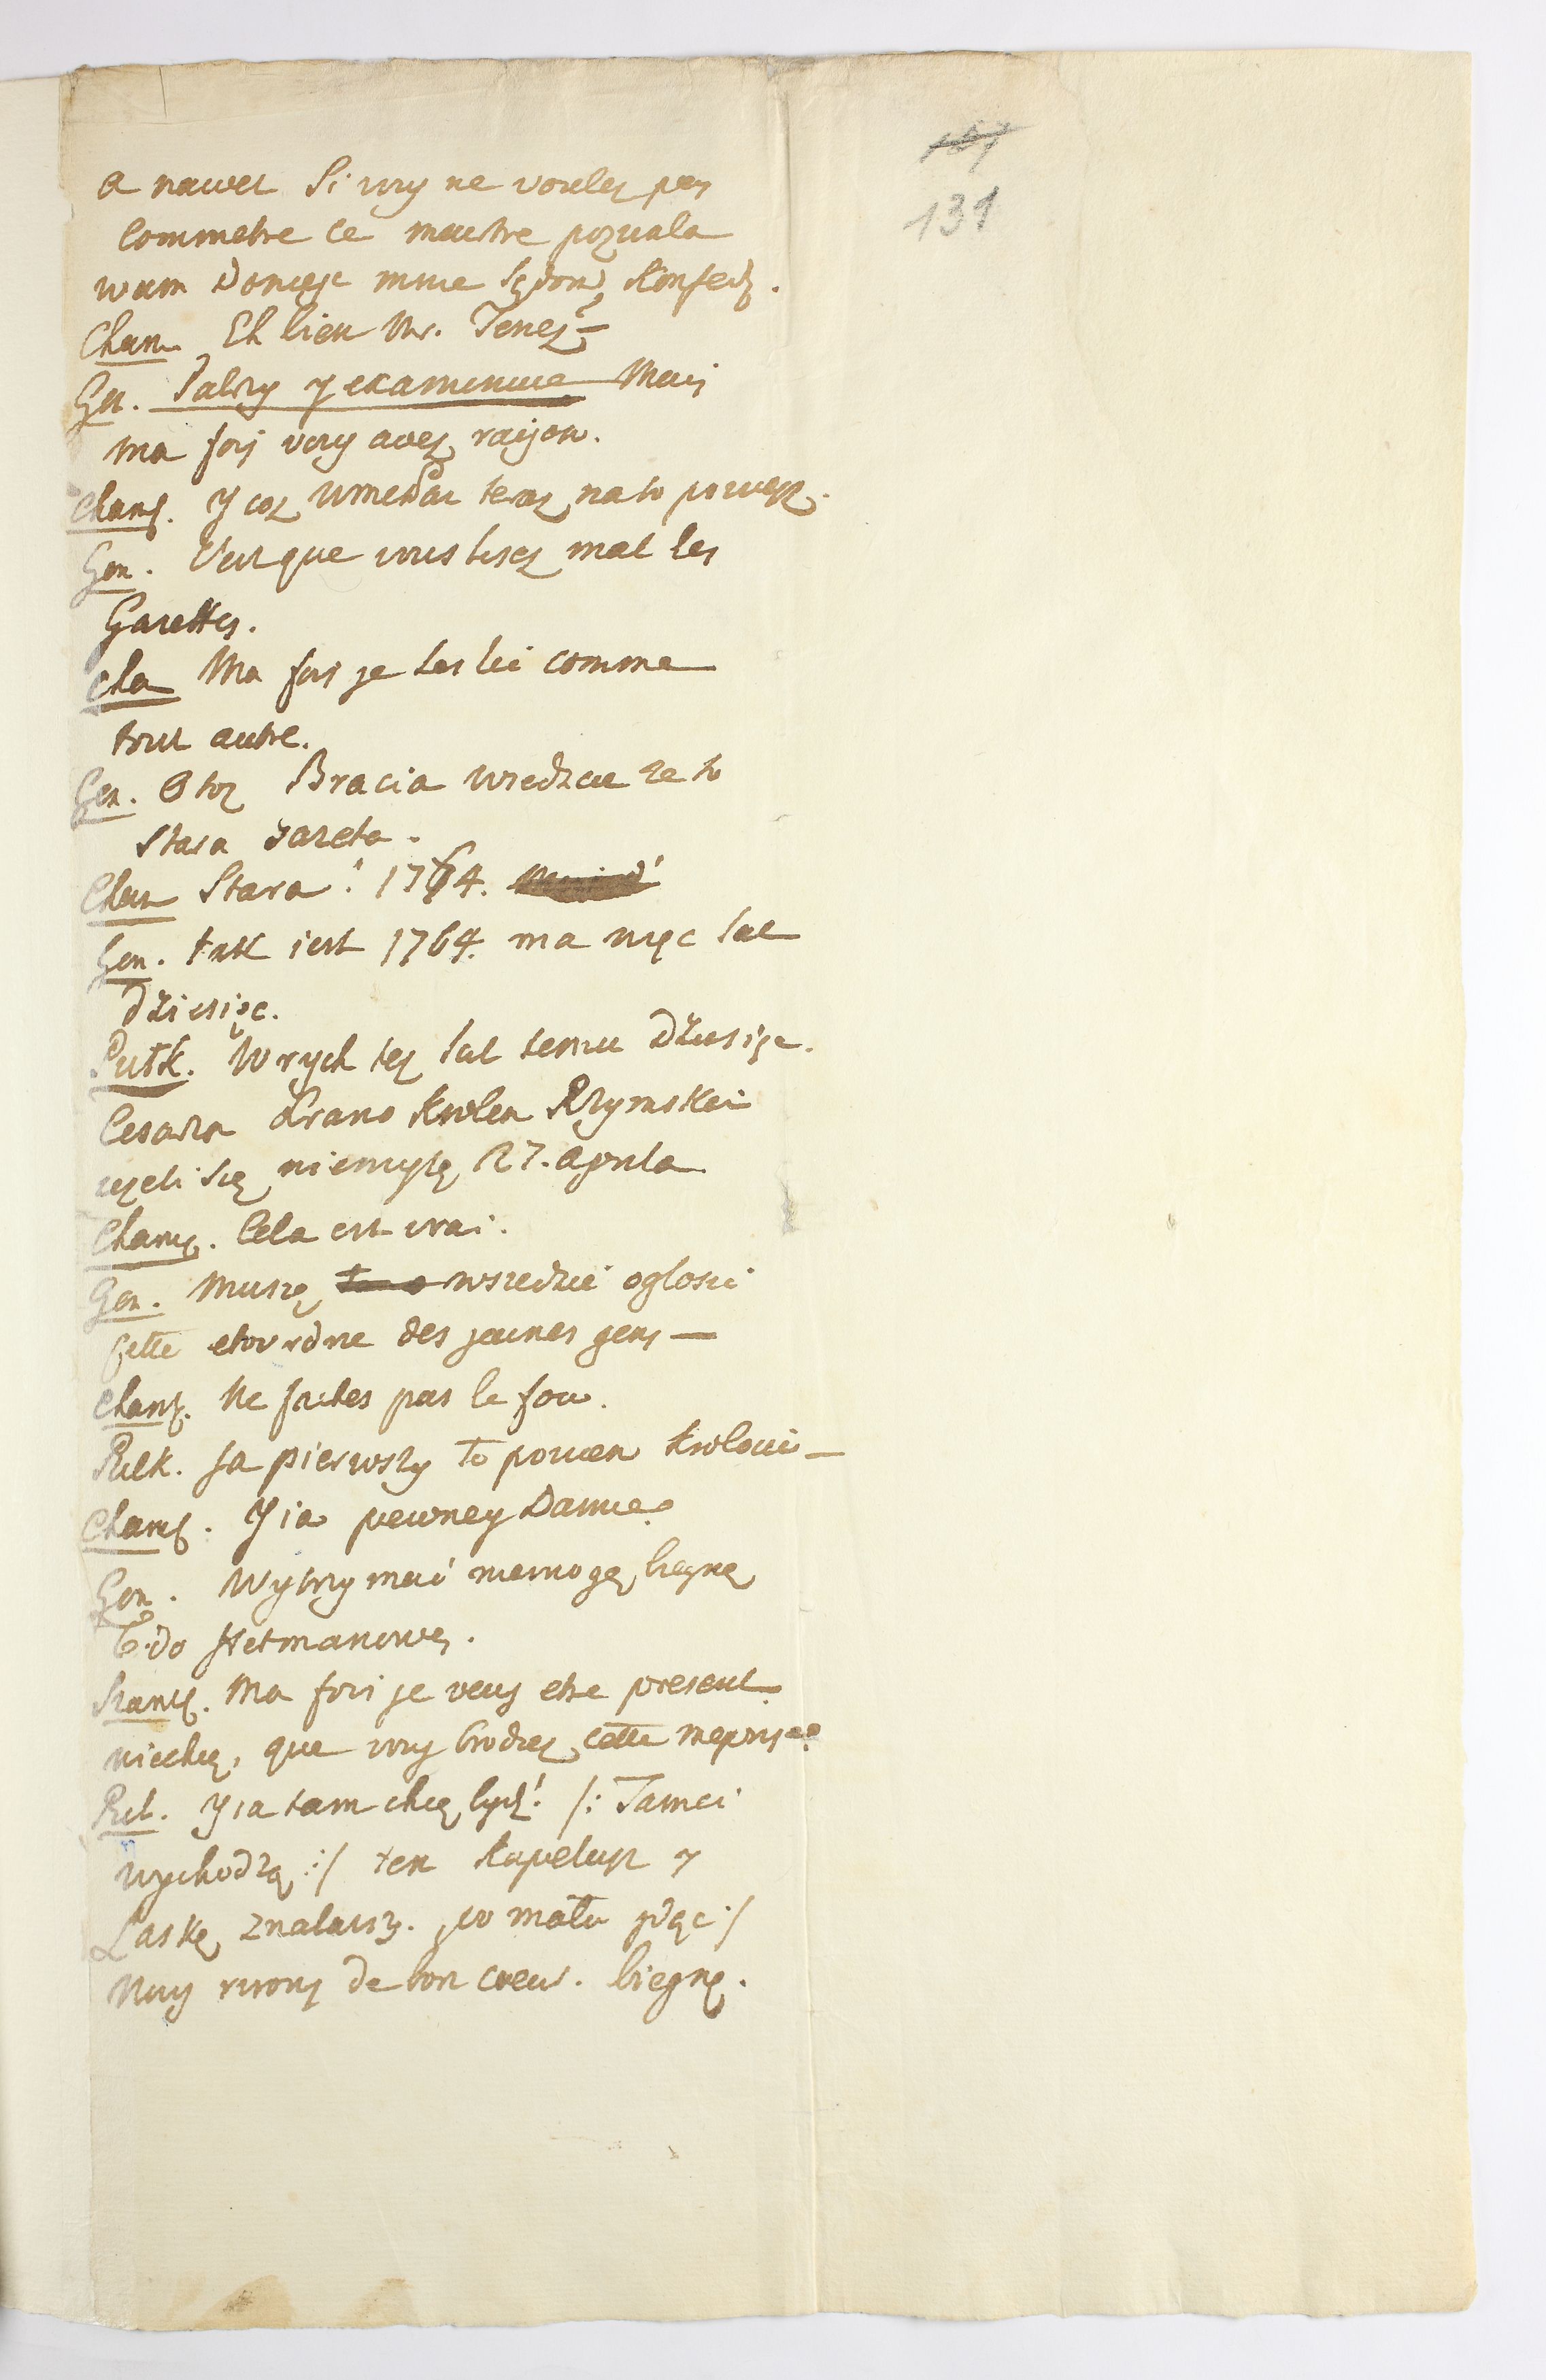 131
a nawet Si vny ne voulez pas
Commetre ce meutre pozwala
wam Donieść mnie Sędom Konfed.
Cham Eh bien Mr. Tenez –
Gen. Patrzy y examinuie Mais
ma foy vous avez raison.
Chamb. Y coz WMCPan teraz na to powiesz.
Gen. C'est que vous lisez mal les
Gazettes.
Cha Ma fois je les lis comme
tout autre.
Gen. Otoz Bracia wiedzcie ze to
Stara Gazeta.
Cham Stara! 1764.
Gen. tak iest 1764. ma więc lat
dziesięc.
Pułk. W tych tez lat temu dziesięc.
Cesarza Obrano Krolem Rzymskim
27. Aprila
Chamb. Cela est vrai.
Gen. Muszę wszedzie oglosic
Cette etourdrie des jeunes gens —
Chamb. Ne faites pas le fou.
Pulk. Ja pierwszy to powiem Krolowi —
Chamb. Y ia pewney Damie.
Gen. Wytrzymać niemogę, biegnę
do Hetmanowey.
Szamb. Ma fois je veux etre present
niechcę, que vous brodiez cette meprise.
Pul. Y ia tam chcę bydź! /: Tamci
wychodzą :/ ten kapelusz y
Laskę znalazsz. po mału idąc :/
Nuy rirons de bon coeur. biegnę.